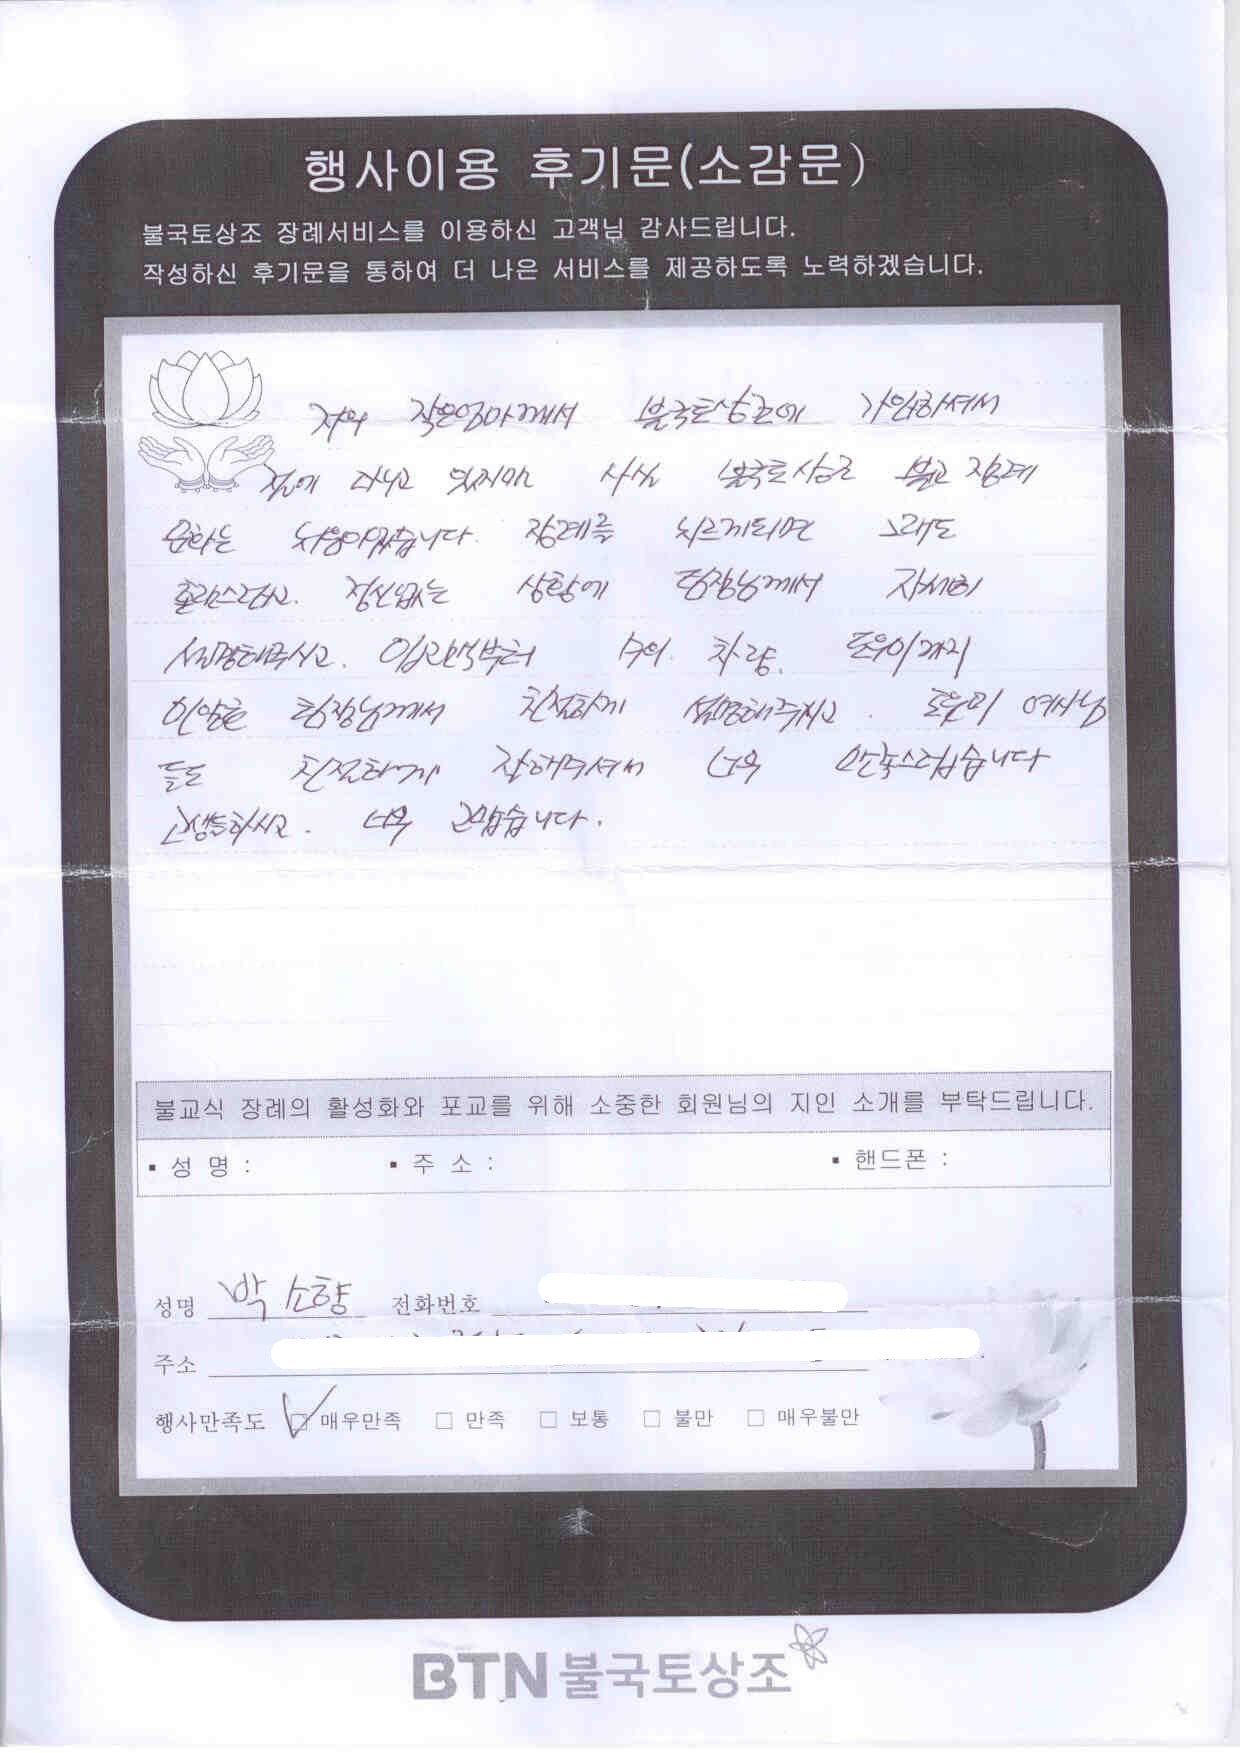 행사이용 후기문(소감문)
불국토상조 장례서비스를 이용하신 고객님 감사드립니다.
작성하신 후기문을 통하여 더 나은 서비스를 제공하도록 노력하겠습니다.
저의 작은엄마께서 불국토상조에 가입하셔서
절에 다니고 있지만 사실 불국토상조 불교 장례
문화는 처음이었습니다. 장례를 치르게되면 그래도
혼란스럽고. 정신없는 상황에 팀장님께서 자세히
설명해주시고. 입관식부터 수의. 차량. 도우미까지
팀장님께서 친절하게 설명해주시고. 도우미 여사님
들도 친절하게 잘해주셔서 너무 만족스럽습니다
고생들하시고. 너무 고맙습니다.
불교식 장례의 활성화와 포교를 위해 소중한 회원님의 지인 소개를 부탁드립니다.
▪ 성 명 : ▪ 주 소 : ▪ 핸드폰 :
성명 박소향 전화번호
주소
행사만족도 □ 매우만족 □ 만족 □ 보통 □ 불만 □ 매우불만
BTN불국토상조